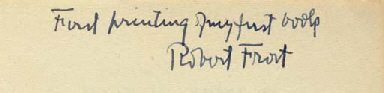 First printing of my first book
Robert Frost